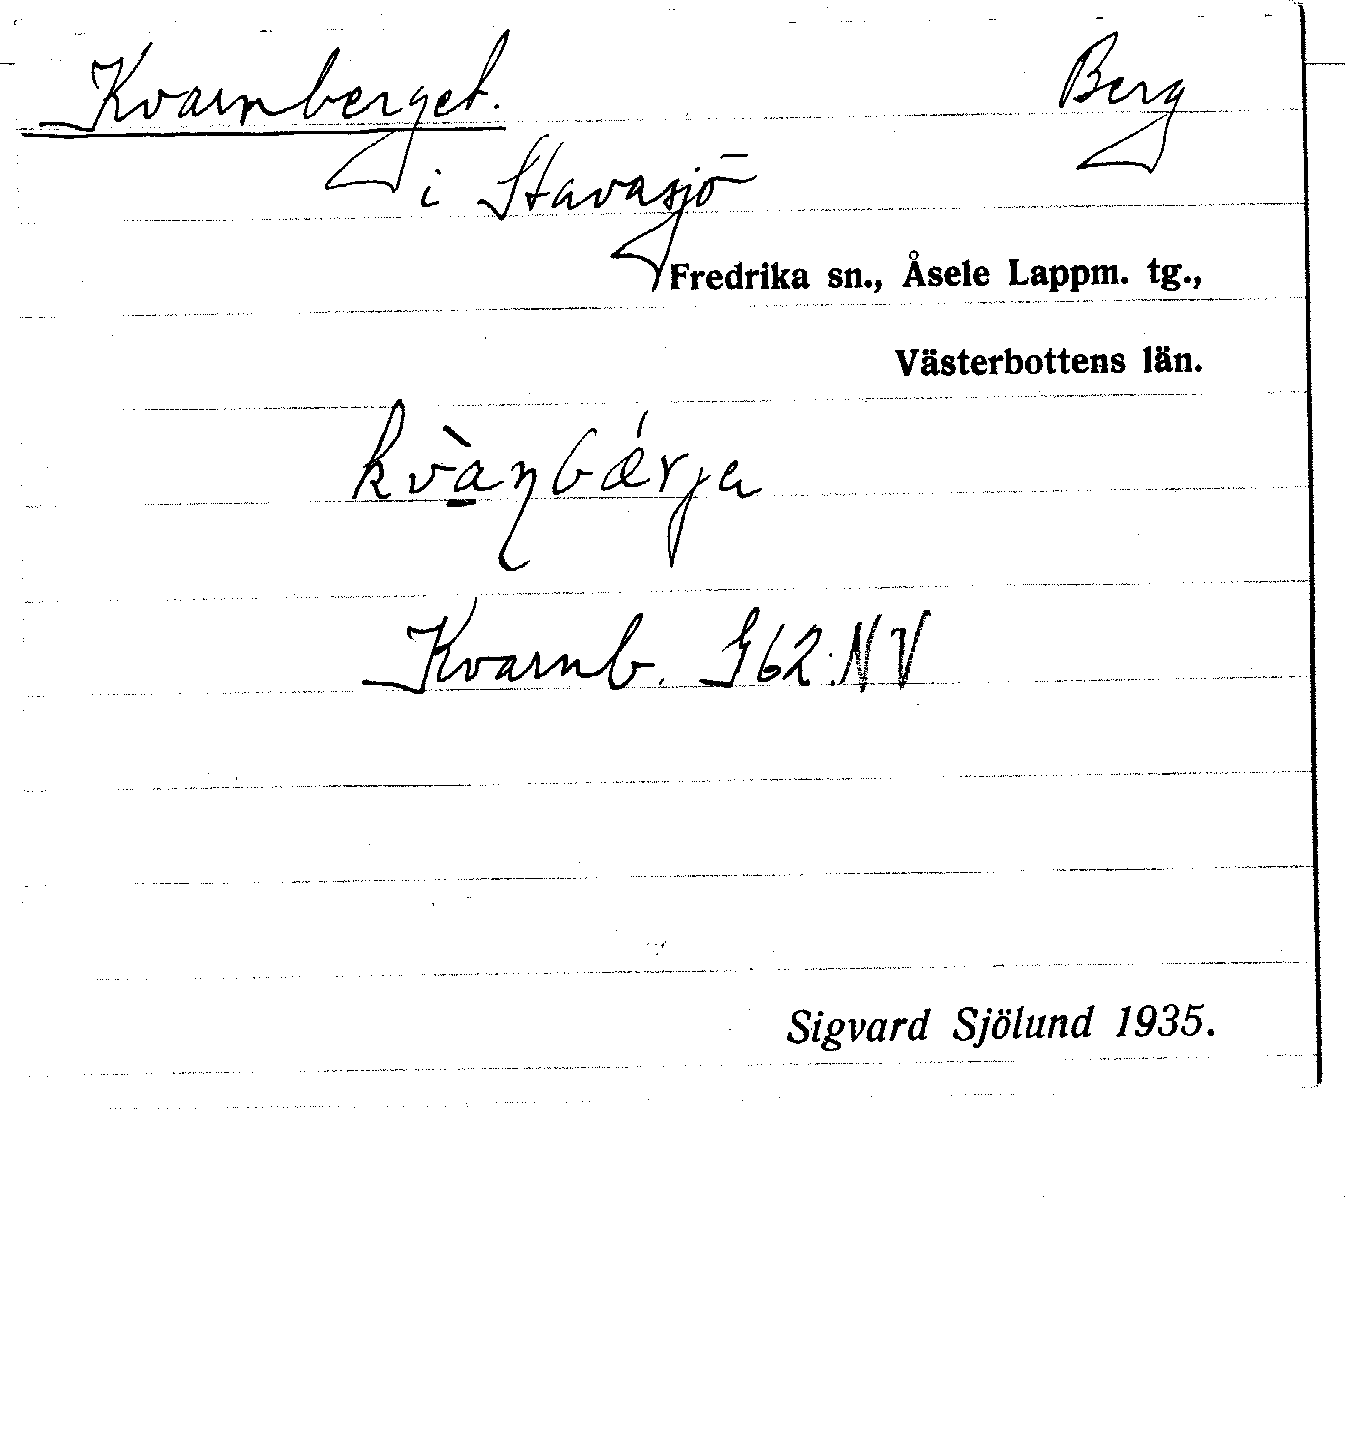 Kvarnberget. Berg
i Stavasjö
Fredrika sn., Åsele Lappm. tg.,
Västerbottens län.
kvà̱ɳbǽrjɐ
Kvarnb. G62:NV
Sigvard Sjölund 1935.